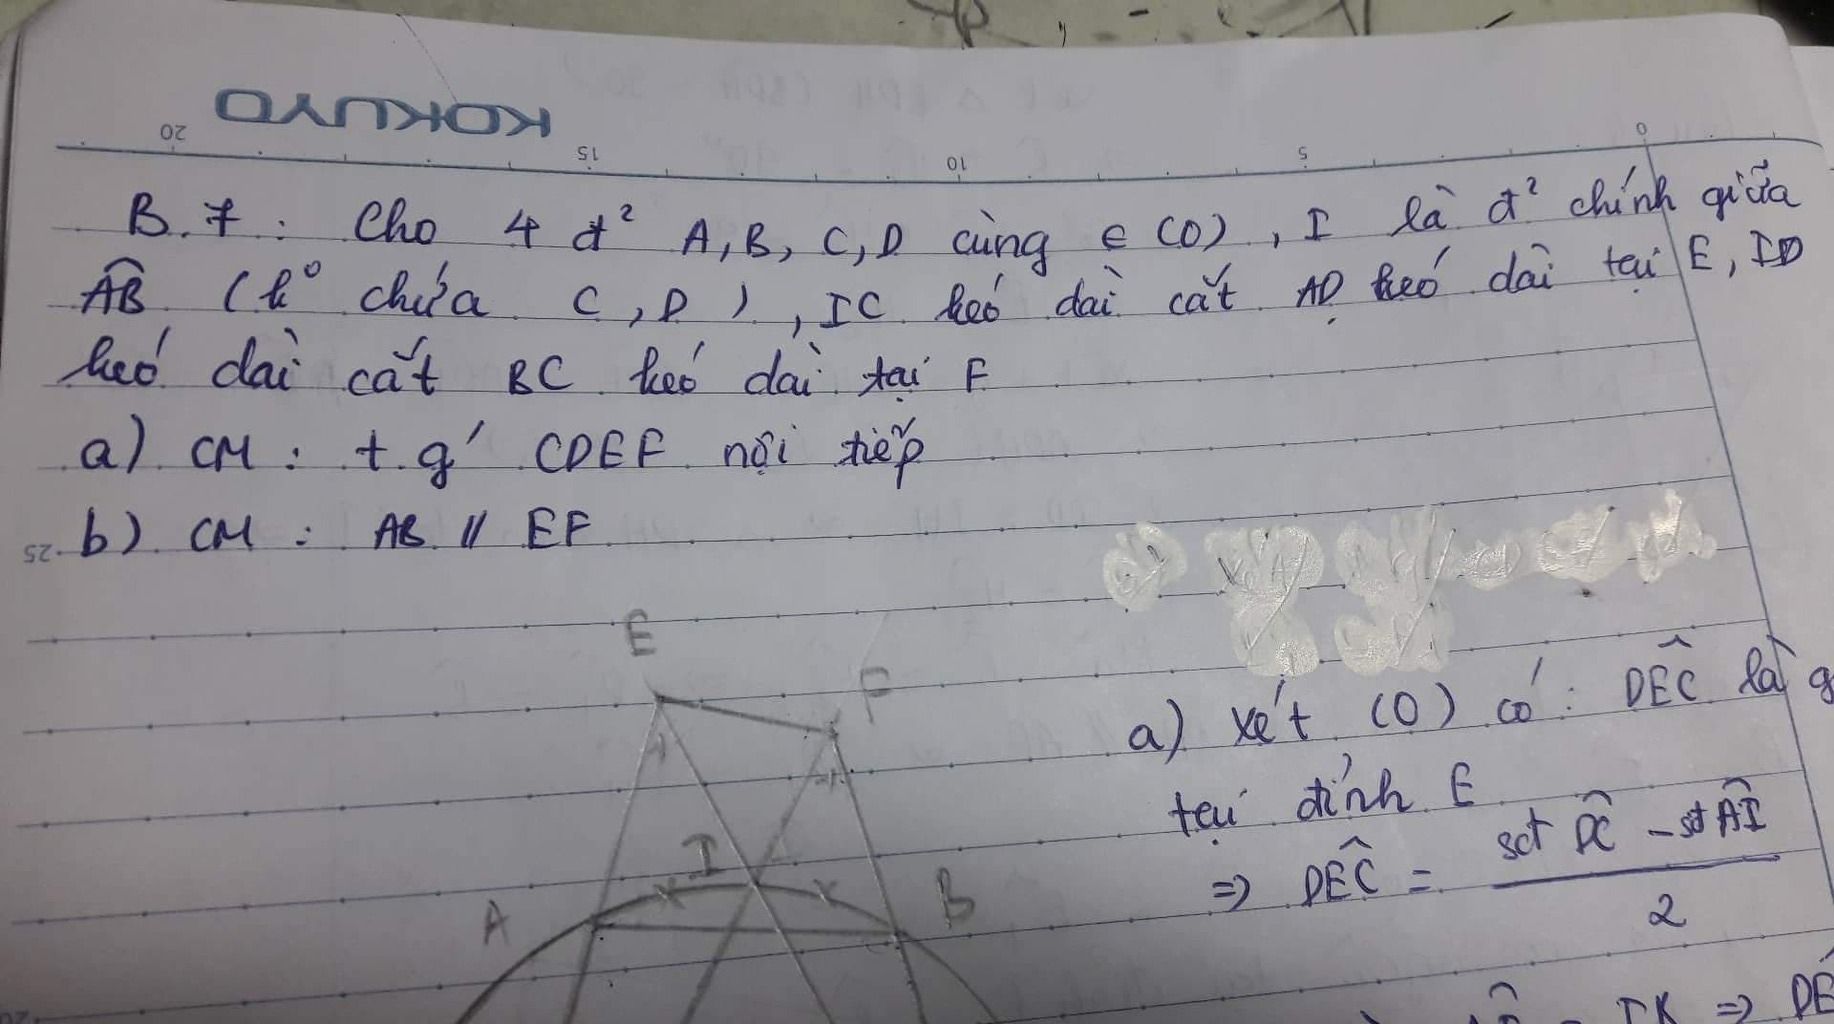 KOKUYO
20 15 10 5 0
B.7: Cho 4 đ² A, B, C, D cùng ∈ (O), I là đ² chính giữa
AB̂ (k⁰ chứa C, D), IC kéo dài cắt AD kéo dài tại E, ID
kéo dài cắt BC kéo dài tại F
a) CM: t.g' CDEF nội tiếp
25 b) CM: AB // EF
E
F
I
A
B
a) xét (O) có: DÊC là g
tại đỉnh E
=> DÊC = (sđ DĈ - sđ AÎ) / 2
=> DÊ